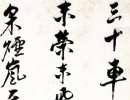 三十車
未榮未
泉煙嵐